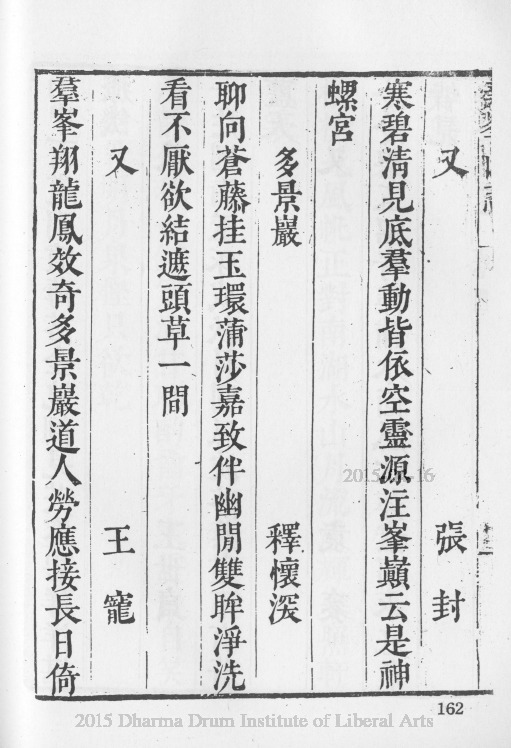 又　張封
寒碧清見底羣動皆依空靈源注峯巔云是神
螺宮
多景巖　釋懷深
聊向蒼藤挂玉環蒲莎嘉致伴幽閒雙眸淨洗
看不厭欲結遮頭草一間
又　王寵
羣峯翔龍鳳效奇多景巖道人勞應接長日倚
162
2015 Dharma Drum Institute of Liberal Arts